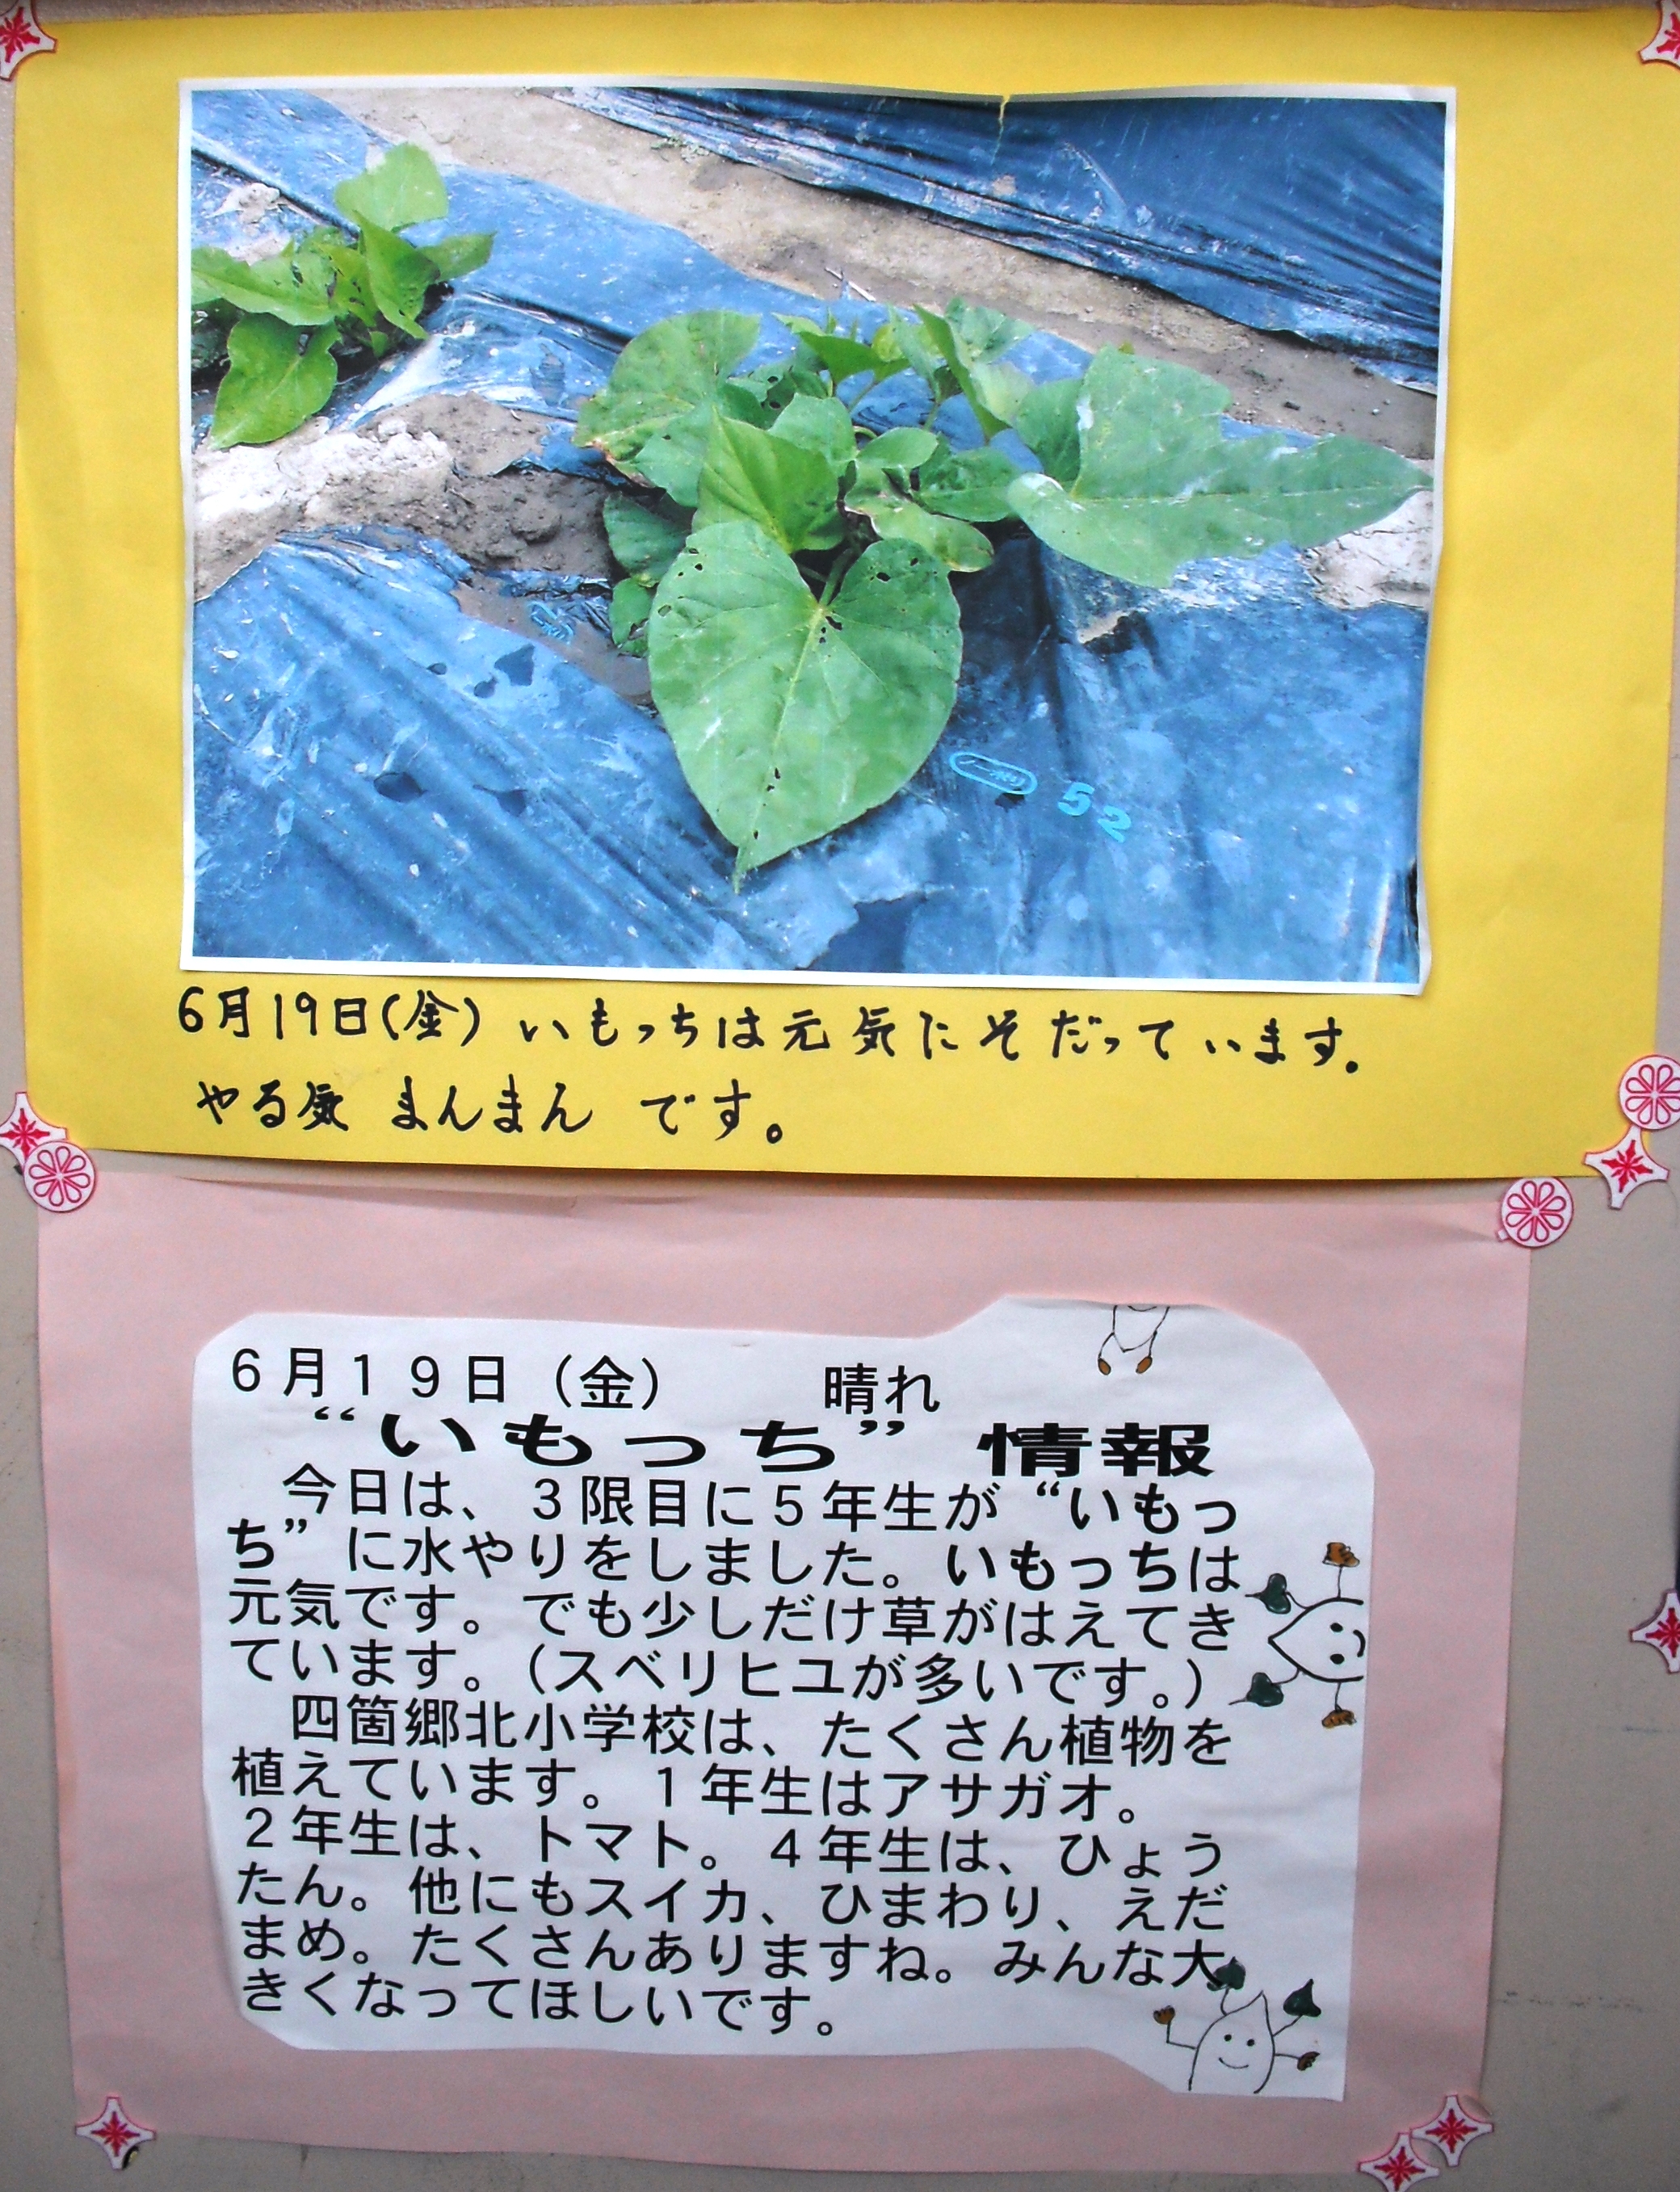 52
6月19日(金) いもっちは元気にそだっています。
やる気 まんまん です。
6月19日（金）　　晴れ
“いもっち” 情報
今日は、3限目に5年生が“いもっ
ち”に水やりをしました。いもっちは
元気です。でも少しだけ草がはえてき
ています。（スベリヒユが多いです。）
四箇郷北小学校は、たくさん植物を
植えています。1年生はアサガオ。
2年生は、トマト。4年生は、ひょう
たん。他にもスイカ、ひまわり、えだ
まめ。たくさんありますね。みんな大
きくなってほしいです。